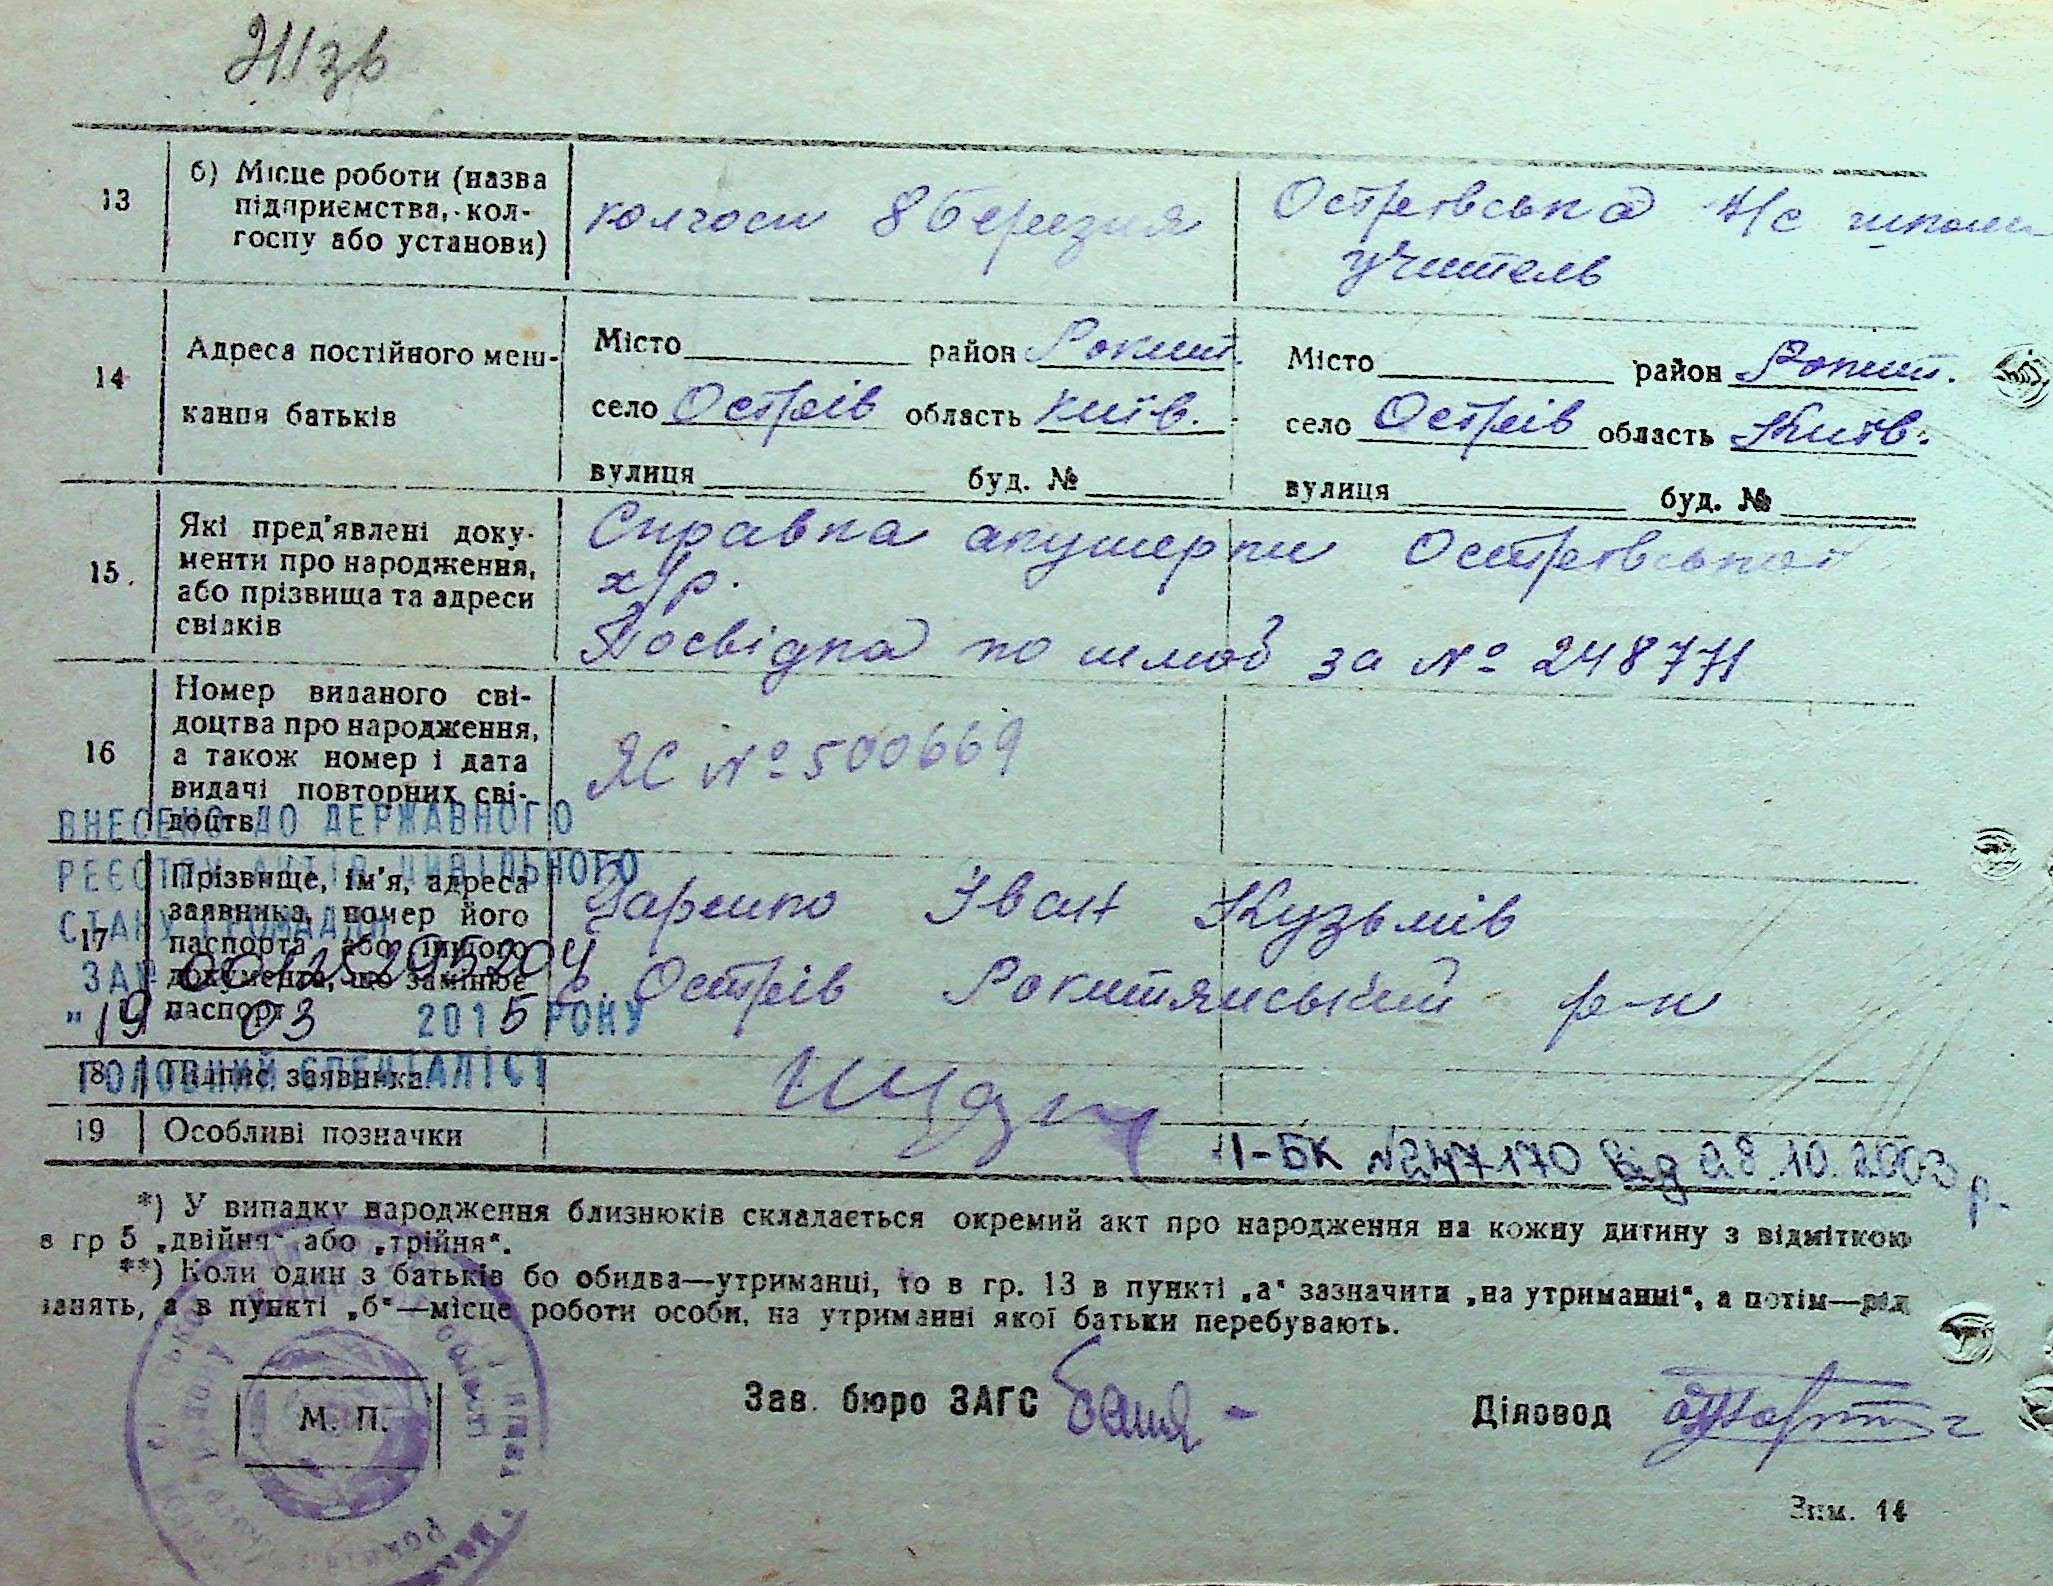 13 б) Місце роботи (назва
підприємства, кол-
госпу або установи)
колгосп 8 Березня
Острівська Н/с школа
учитель
14 Адреса постійного меш-
кання батьків
Місто район Рокит.
село Острів область Київ.
вулиця буд. №
Місто район Рокит.
село Острів область Київ.
вулиця буд. №
15. Які пред'явлені доку-
менти про народження,
або прізвища та адреси
свідків
Справка акушерки Острівської
х/р.
Посвідка по шлюб за № 248771
16 Номер виданого сві-
доцтва про народження,
а також номер і дата
видачі повторних сві-
доцтв
ЯС № 500669
ВНЕСЕНО ДО ДЕРЖАВНОГО
РЕЄСТРУ АКТІВ ЦИВІЛЬНОГО
СТАНУ ГРОМАДЯН
ЗА №
" 19 03 2015 РОКУ
ГОЛОВНИЙ СПЕЦІАЛІСТ
17 Прізвище, ім'я, адреса
заявника, номер його
паспорта або іншого
документа, що замінює
паспорт
Іван Кузьмів
с. Острів Рокитянський р-н
18 Підпис заявника
19 Особливі позначки
І-БК №247170 від 28.10.2003 р.
*) У випадку народження близнюків складається окремий акт про народження на кожну дитину з відміткою
в гр 5 „двійня" або „трійня".
**) Коли один з батьків бо обидва—утриманці, то в гр. 13 в пункті „а" зазначити „на утриманні", а потім—рід
занять, а в пункті „б"—місце роботи особи, на утриманні якої батьки перебувають.
М. П.
Зав. бюро ЗАГС
Діловод
Зим. 14